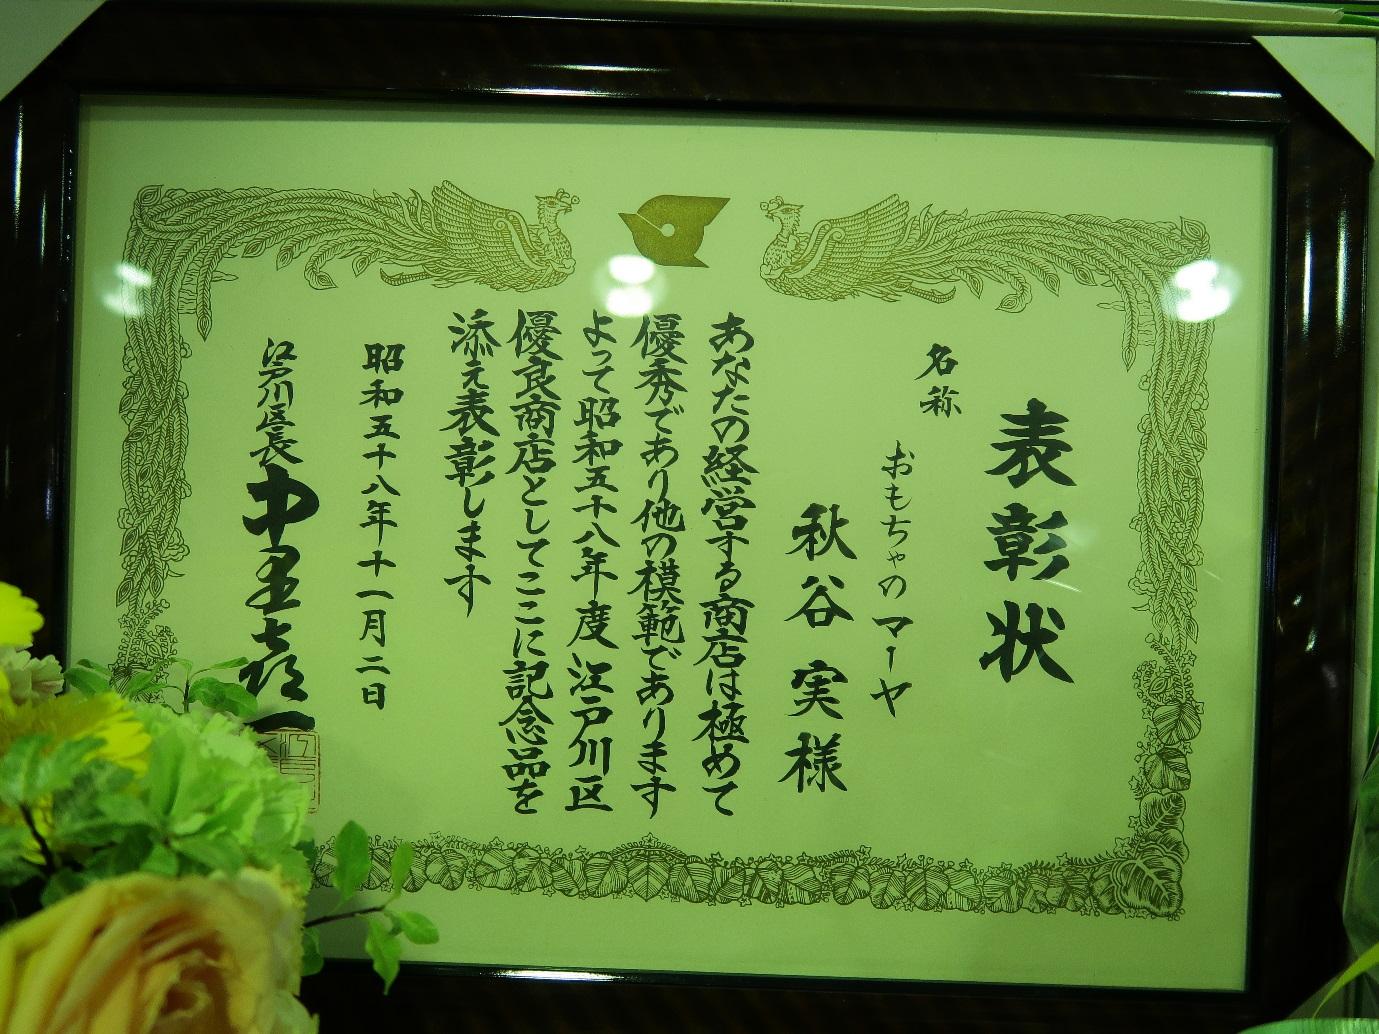 表彰状
名称
おもちゃのマーヤ
秋谷実様
あなたの経営する商店は極めて
優秀であり他の模範であります
よって昭和五十八年度江戸川区
優良商店としてここに記念品を
添え表彰します
昭和五十八年十一月二日
江戸川区長 中里喜一